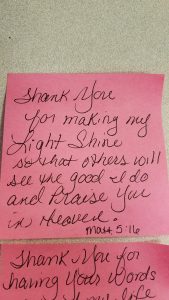 Thank You
for making my
Light Shine
so that others will
see the good I do
and Praise You
in Heaven.
Matt 5:16
Thank You for
having Your Words